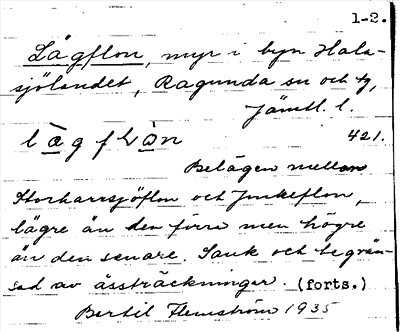 1-2.
Lågflon, myr i byn Hala-
sjölandet, Ragunda sn och tg,
Jämtl. l.
låg flon 421.
Belägen mellan
Storharrsjöflon och Junkeflon,
lägre än den förra men högre
än den senare. Sank och begrän-
sad av åssträckningar. (forts.)
Bertil Flemström 1935